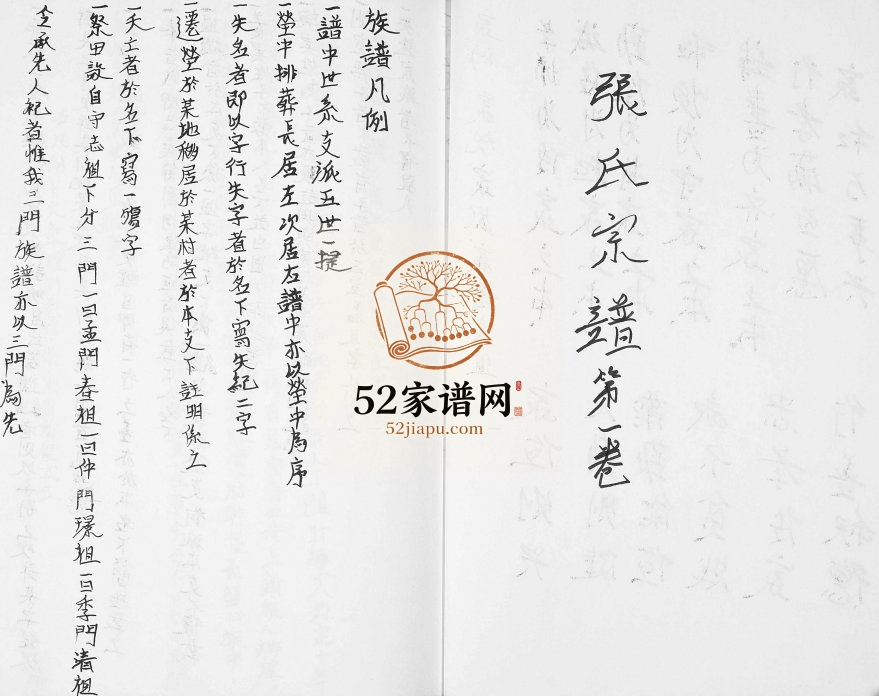 張氏宗譜第一卷
族譜凡例
一譜中世系支派五世一提
一塋中排葬長居左次居右譜中亦以塋中為序
一失名者即以字行失字者於名下寫失紀二字
一遷塋於某地移居於某村者於本支下註明係立
一夭亡者於名下寫一殤字
一祭田設自守志祖下分三門一曰孟門春祖一曰仲門璟祖一曰季門清祖
念承先人祀者惟我三門族譜亦以三門為先
52家谱网
52jiapu.com